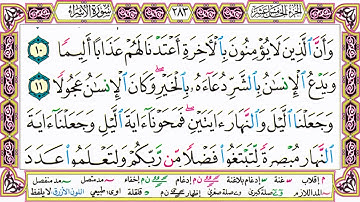 الجزء الخامس عشر ٢٨٣ سورة الإسراء
وَأَنَّ ٱلَّذِينَ لَا يُؤْمِنُونَ بِٱلْآخِرَةِ أَعْتَدْنَا لَهُمْ عَذَابًا أَلِيمًا ١٠
وَيَدْعُ ٱلْإِنسَٰنُ بِٱلشَّرِّ دُعَآءَهُۥ بِٱلْخَيْرِ وَكَانَ ٱلْإِنسَٰنُ عَجُولًا ١١
وَجَعَلْنَا ٱلَّيْلَ وَٱلنَّهَارَ ءَايَتَيْنِ فَمَحَوْنَآ ءَايَةَ ٱلَّيْلِ وَجَعَلْنَآ ءَايَةَ
ٱلنَّهَارِ مُبْصِرَةً لِّتَبْتَغُوا۟ فَضْلًا مِّن رَّبِّكُمْ وَلِتَعْلَمُوا۟ عَدَدَ